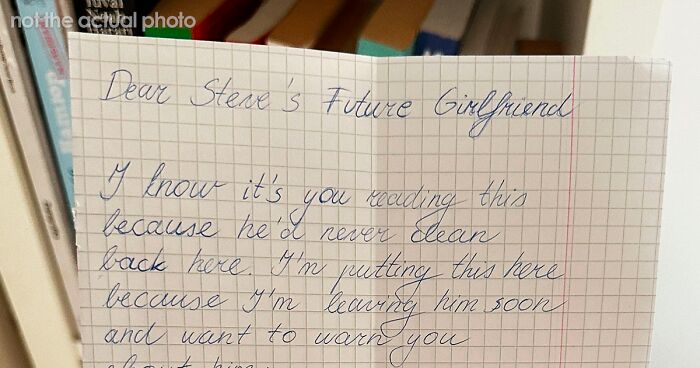 not the actual photo
donuts
Dear Steve's Future Girlfriend
I know it's you reading this
because he'd never clean
back here. I'm putting this here
because I'm leaving him soon
and want to warn you
about him